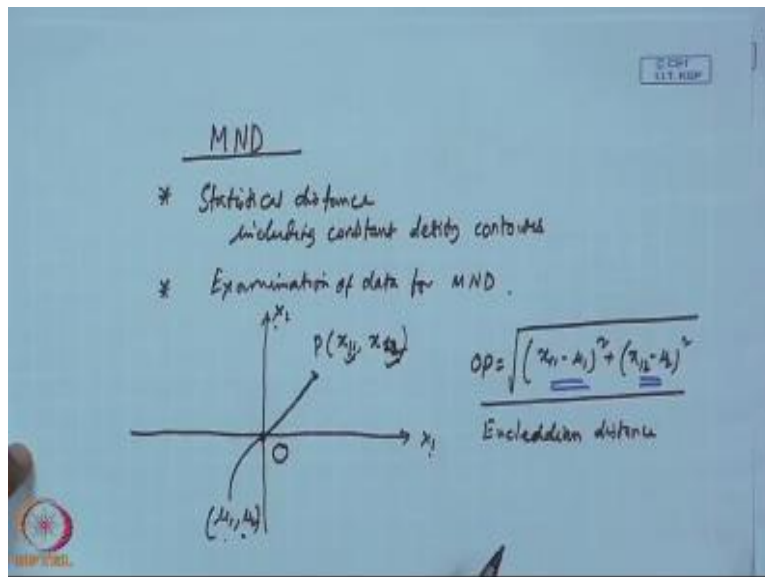 © CET
I.I.T. KGP
MND
* Statistical distance
including constant density contours
* Examination of data for MND.
x₂
P(x₁₁, x₁₂)
OP = √(x₁₁ - μ₁)² + (x₁₂ - μ₂)²
x₁
O
Eucleddian distance
(μ₁, μ₂)